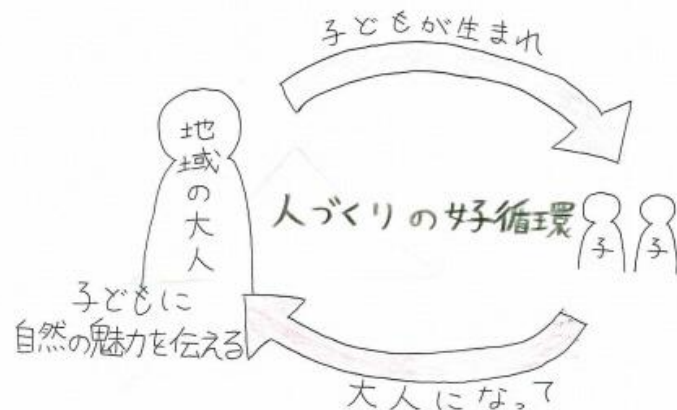 子どもが生まれ
地域の大人
人づくりの好循環
子
子
子どもに
自然の魅力を伝える
大人になって